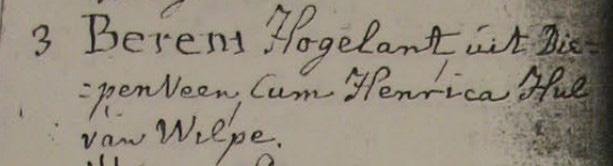 3 Berent Hogelant uit Die=
=penveen, Cum Henrica Hul
van Wilpe.